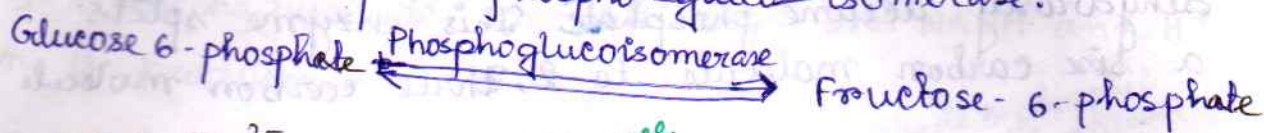 phospho gluco isomerase.
Glucose 6-phosphate Phosphoglucoisomerase Fructose-6-phosphate